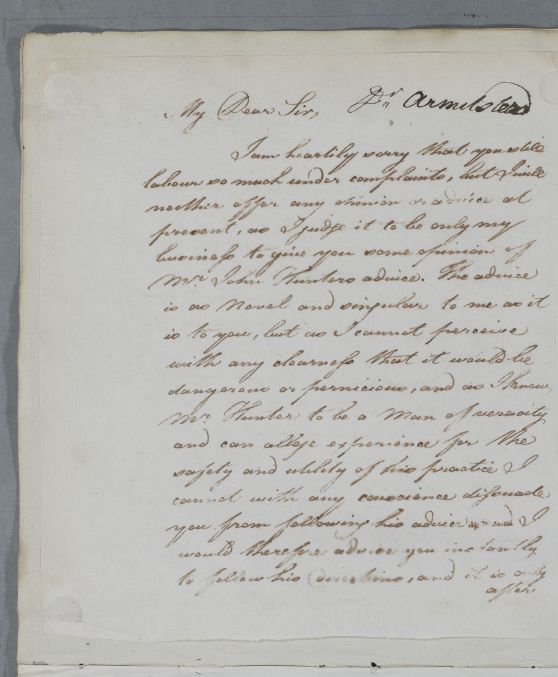 My Dear Sir, Dr. Armitstead
I am heartily sorry that you still
labour so much under complaints, but I will
neither offer any opinion or advice at
present, as I judge it to be only my
business to give you some opinion of
Mr. John Hunters advice. The advice
is as Novel and singular to me as it
is to you, but as I cannot perceive
with any clearness that it would be
dangerous or pernicious, and as I know
Mr. Hunter to be a Man of veracity
and can allege experience for the
safety and utility of his practice I
cannot with any conscience dissuade
you from following his advice and I
would therefore advise you instantly
to follow his directions, and it is only
after